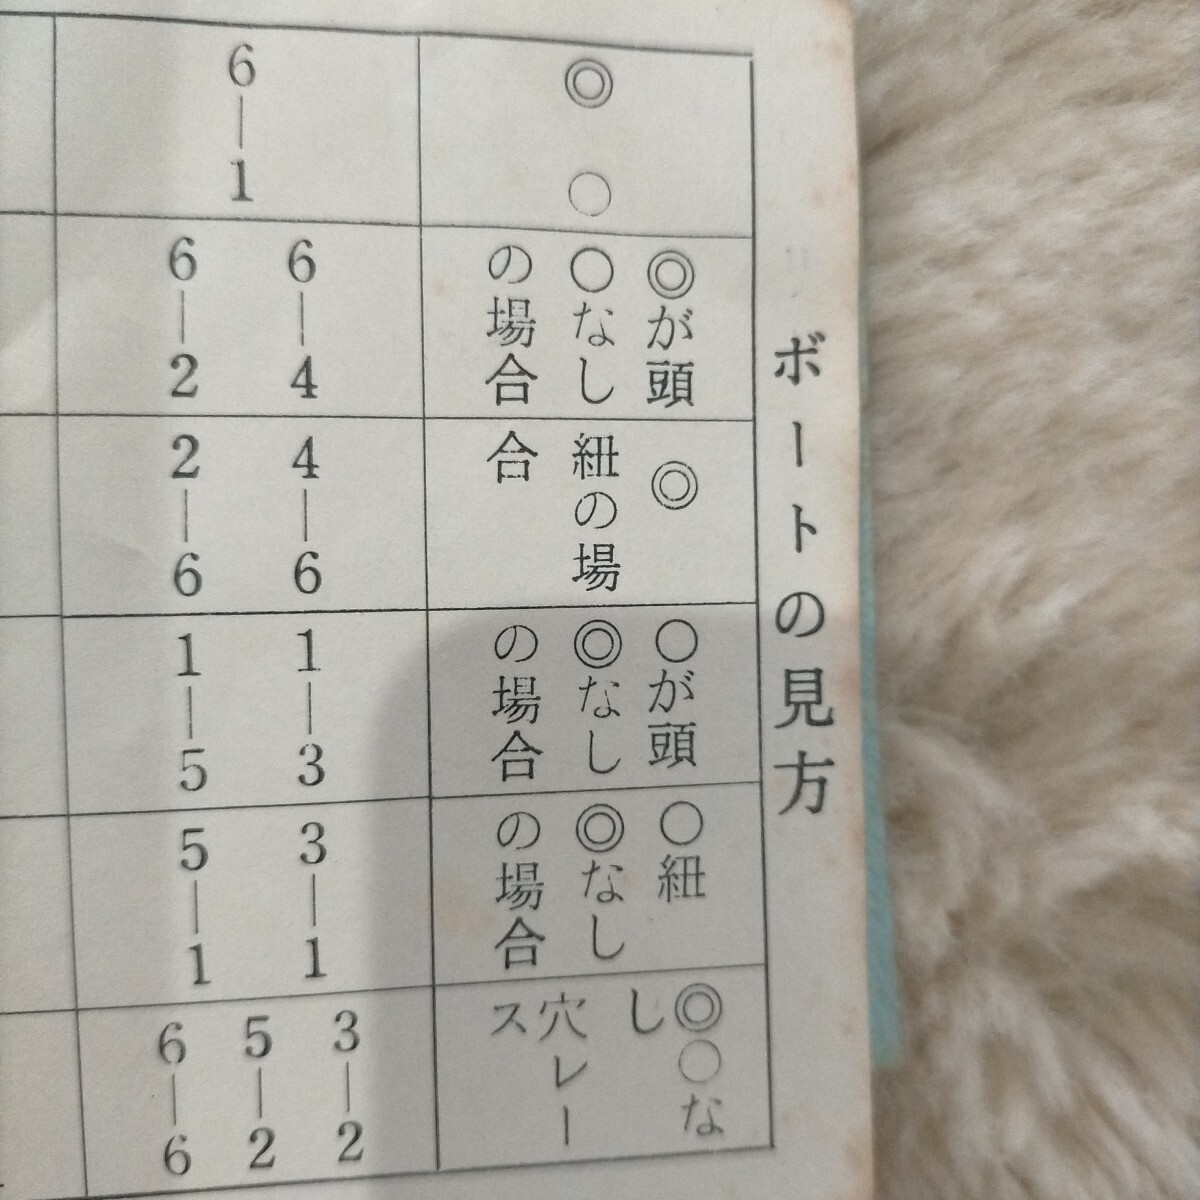 ボートの見方
◎ ○
6―1
◎が頭
○なし
の場合
6―4
6―2
◎
紐の場
合
4―6
2―6
○が頭
◎なし
の場合
1―3
1―5
○紐
◎なし
の場合
3―1
5―1
◎○な
し
穴レー
ス
3―2
5―2
6―6